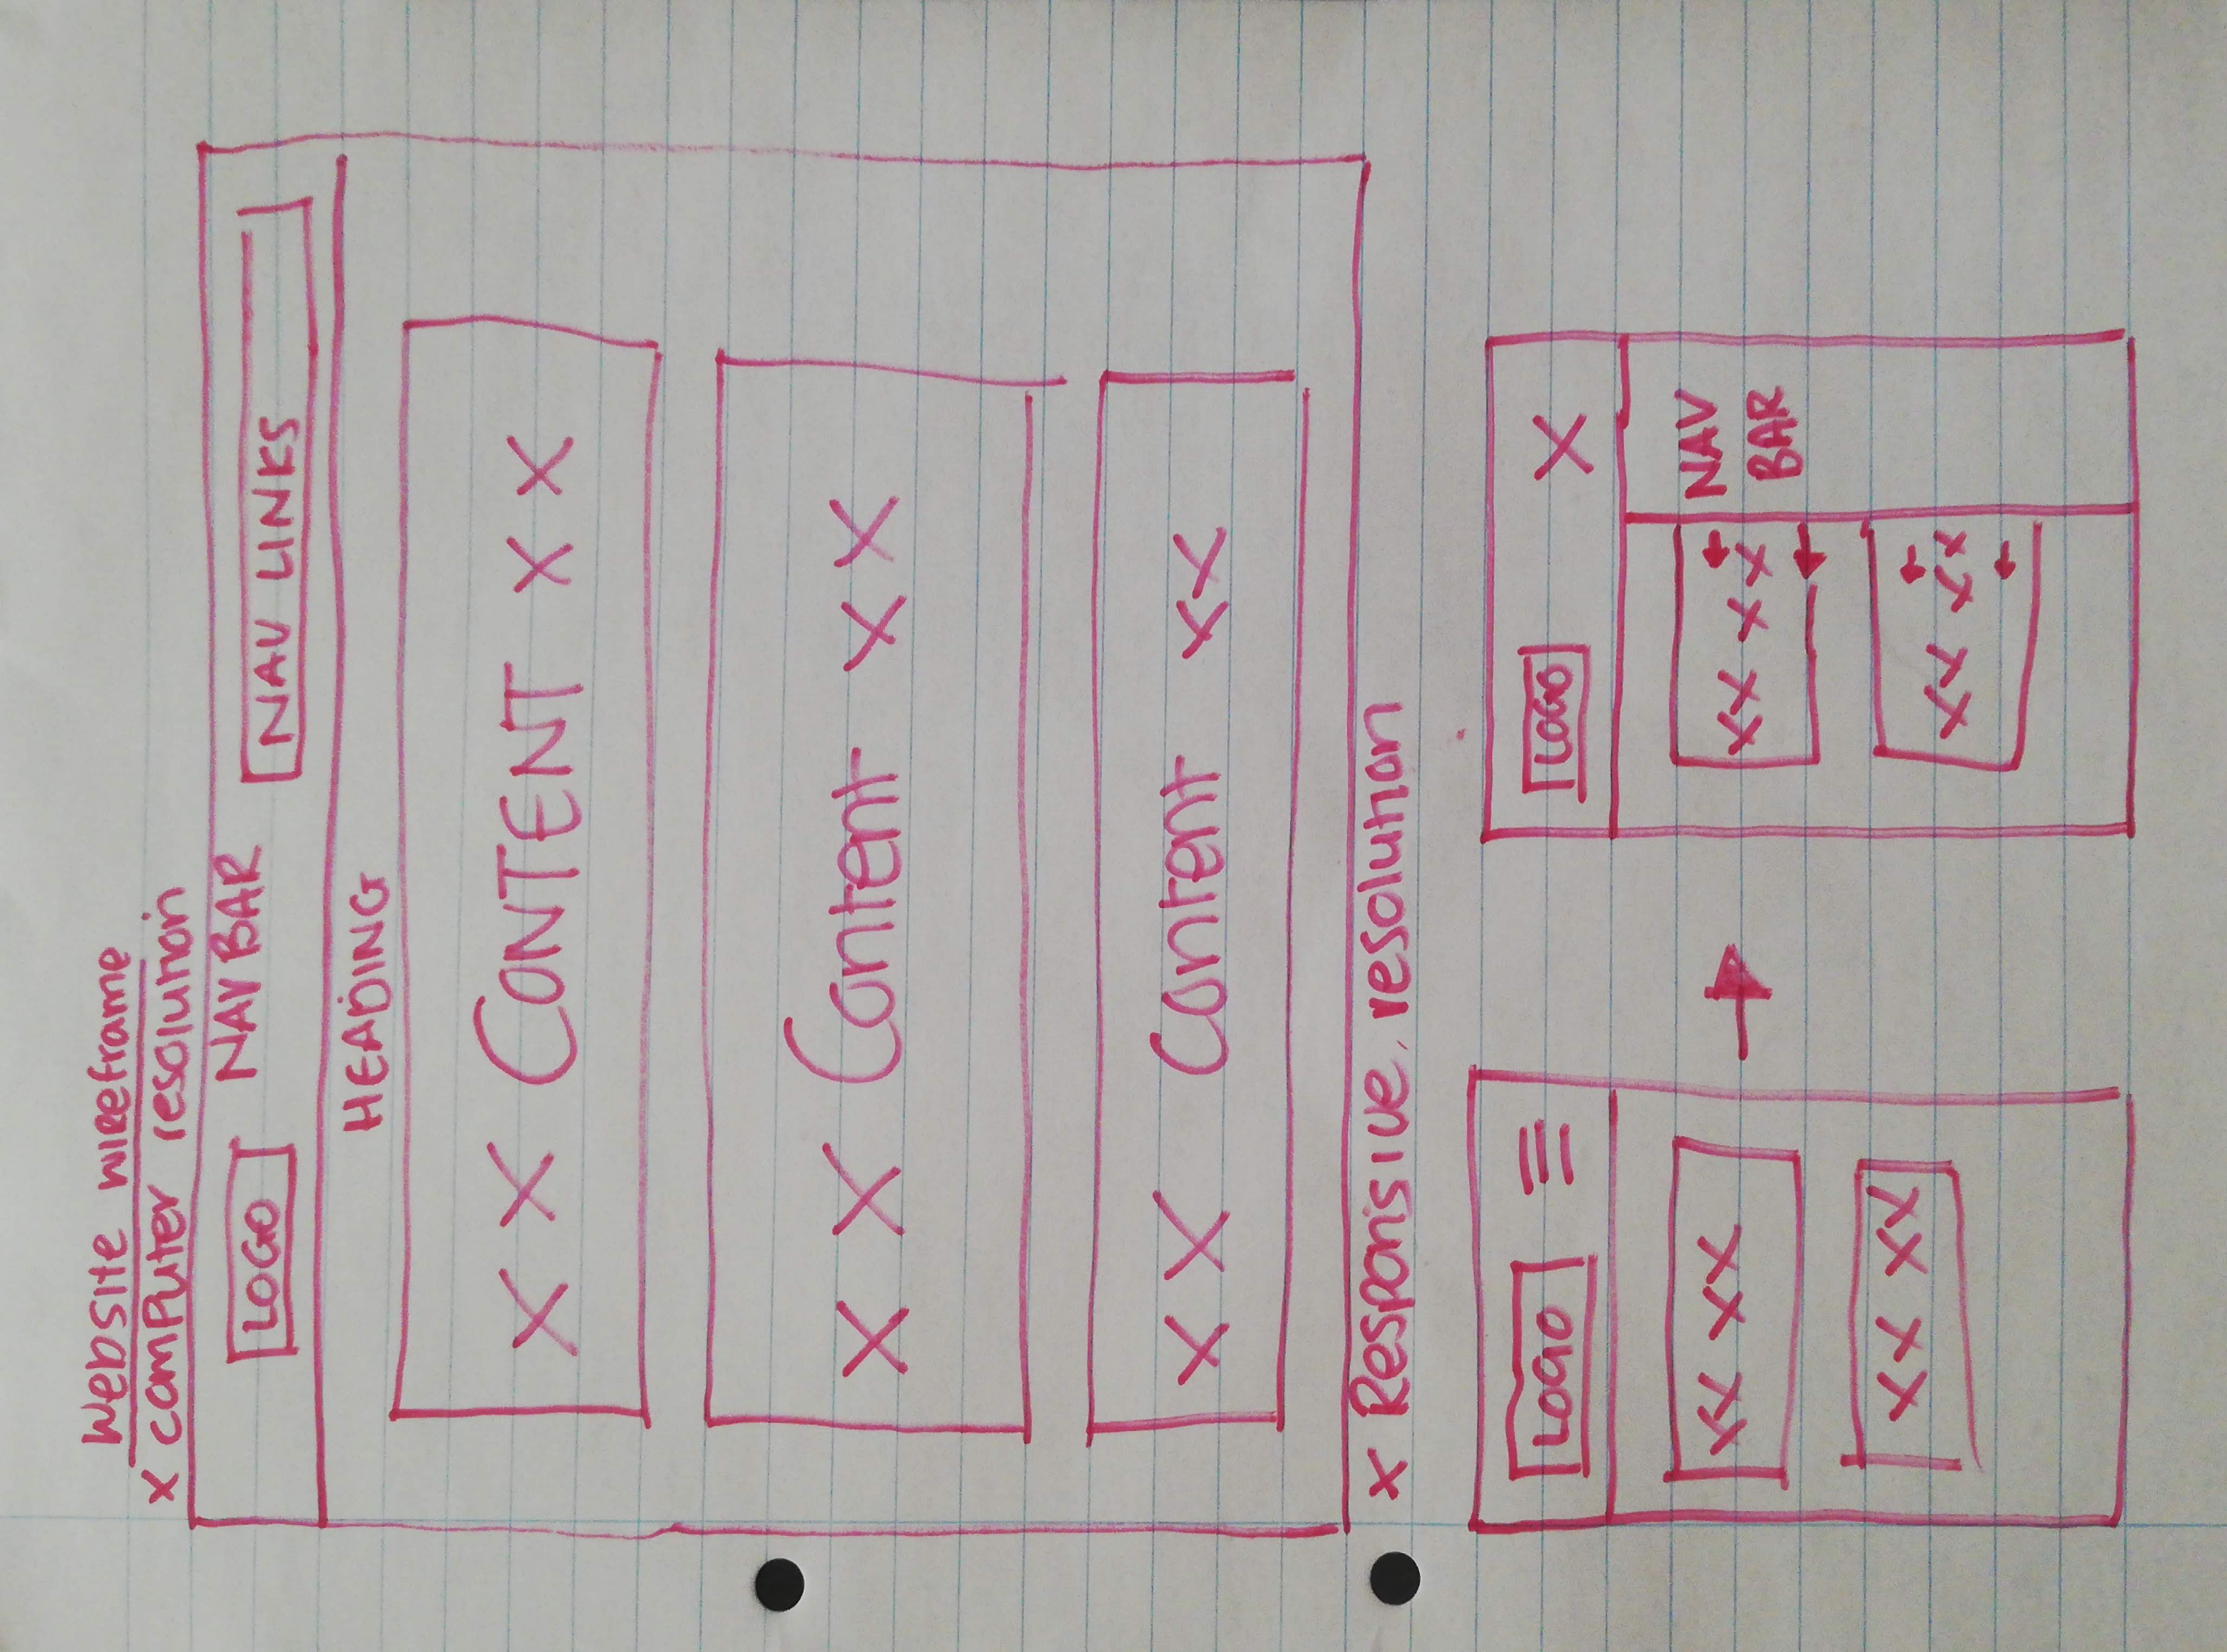 Website wireframe
x computer resolution
LOGO NAV BAR NAV LINKS
HEADING
X X CONTENT X X
X X Content X X
X X Content XX
x Responsive resolution
LOGO
XX XX
XX XX
LOGO X
NAV
BAR
XX X X
XX XX